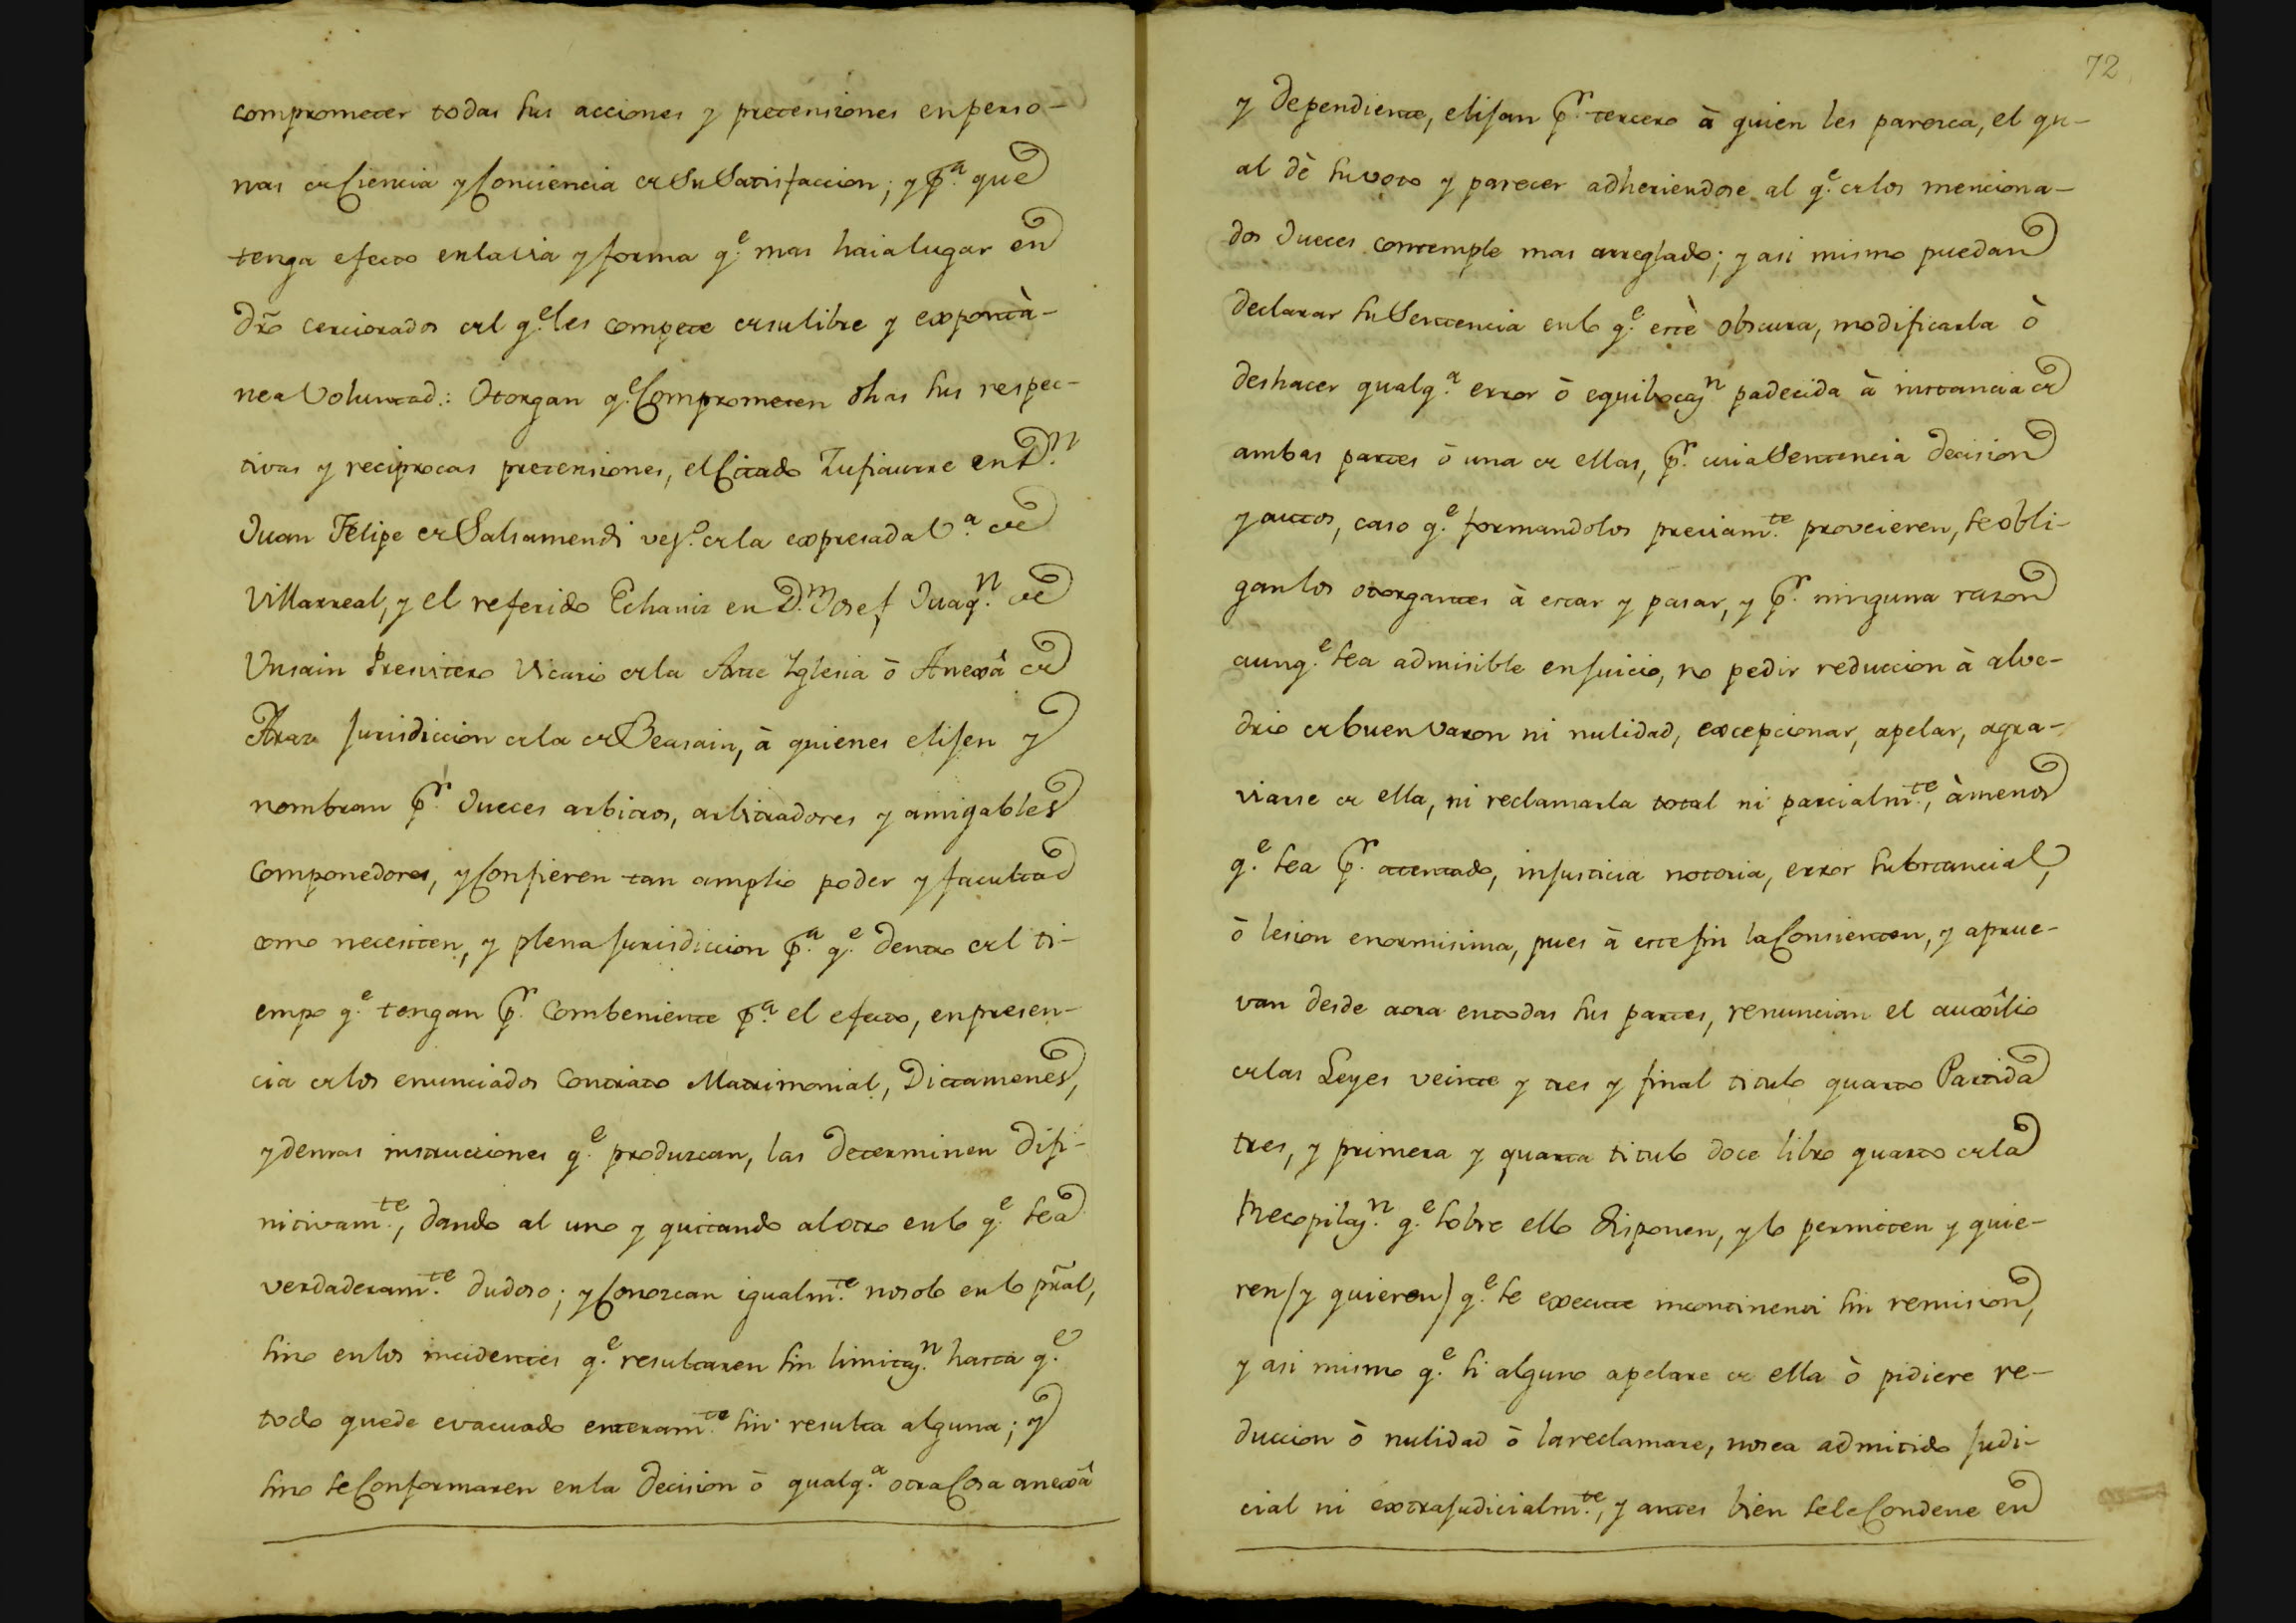 comprometer todas sus acciones y pretensiones en perso-
nas de Ciencia y Conciencia de su Satisfaccion; y p.ª que
tenga efecto en la via y forma q.e mas haia lugar en
dr̃o cerciorados del q.e les compete de su libre y exponta-
nea Voluntad: Otorgan q.e Comprometen dhas sus respec-
tivas y reciprocas pretensiones, el Citado Zufiaurre en D.n
Juan Felipe de Salsamendi vez.o de la expresada V.ª de
Villarreal, y el referido Echaniz en D.n Josef Juaq.n de
Unsain Presvitero Vicario de la Ante Iglesia ò Anexâ de
Araz Jurisdiccion de la de Beasain, à quienes elijen y
nombran p.r Jueces arbitros, arbitradores y amigables
Componedores, y Confieren tan amplio poder y facultad
como necesiten, y plena Jurisdiccion p.ª q.e dentro del ti-
empo q.e tengan p.r Combeniente p.ª el efecto, en presen-
cia de los enunciados Contrato Matrimonial, Dictamenes,
y demas instrucciones q.e produzcan, las determinen difi-
nitivam.te, dando al uno y quitando al otro en lo q.e sea
verdaderam.te dudoso; y Conozcan igualm.te no solo en lo pr̃al,
sino en los incidentes q.e resultaren sin limitaz.n hasta q.e
todo quede evacuado enteram.te sin resulta alguna; y
sino se Conformaren en la decision ò qualq.ª otra Cosa anexâ
72
y dependiente, elijan p.r tercero à quien les paresca, el qu-
al dè su voto y parecer adheriendose al q.e de los menciona-
dos Jueces contemple mas arreglado; y asi mismo puedan
declarar su Sentencia en lo q.e estè obscura, modificarla ò
deshacer qualq.ª error ò equibocaz.n padecida à instancia de
ambas partes ò una de ellas, p.r cuia Sentencia decision
y autos, caso q.e formandolos previam.te proveieren, se obli-
gan los otorgantes à estar y pasar, y p.r ninguna razon
aunq.e sea admisible en juicio, no pedir reduccion à alve-
drio de buen Varon ni nulidad, excepcionar, apelar, agra-
viarse de ella, ni reclamarla total ni parcialm.te, à menos
q.e sea p.r atentado, injusticia notoria, error substancial,
ò lesion enormisima, pues à este fin la Consienten, y aprue-
van desde aora en todas sus partes, renuncian el auxîlio
de las Leyes veinte y tres y final titulo quarto Partida
tres, y primera y quarta titulo doce libro quarto de la
Recopilaz.n q.e sobre ello disponen, y lo permiten y quie-
ren (y quieren) q.e se execute incontinenti sin remision,
y asi mismo q.e si alguno apelare de ella ò pidiere re-
duccion ò nulidad ò la reclamare, no sea admitido Judi-
cial ni extrajudicialm.te, y antes bien se le Condene en